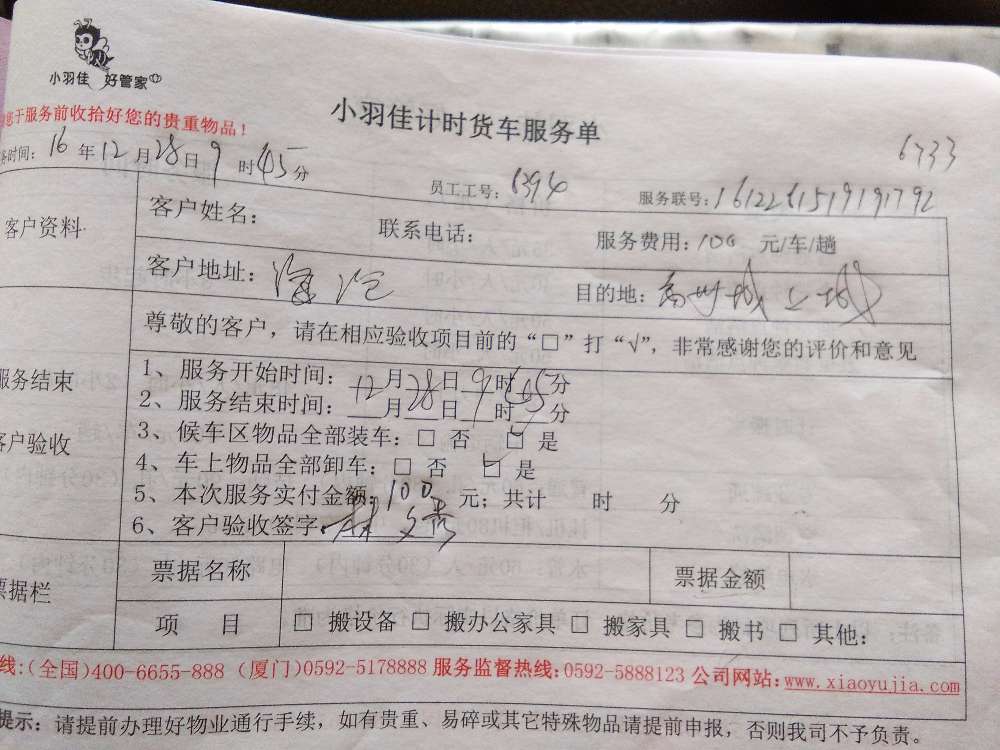 小羽佳 好管家
小羽佳计时货车服务单
于服务前收拾好您的贵重物品！
6733
时间：16年12月28日9时45分
员工工号：6394
服务联号：
客户资料
客户姓名：
联系电话：
服务费用：100 元/车/趟
客户地址：海沧
目的地：
尊敬的客户，请在相应验收项目前的“□”打“√”，非常感谢您的评价和意见
服务结束
客户验收
1、服务开始时间：12月28日9时45分
2、服务结束时间：__月__日__时__分
3、候车区物品全部装车：□ 否 □ 是
4、车上物品全部卸车：□ 否 □ 是
5、本次服务实付金额：100 元；共计 时 分
6、客户验收签字：林
票据栏
票据名称
票据金额
项 目
□ 搬设备 □ 搬办公家具 □ 搬家具 □ 搬书 □ 其他：
线：(全国)400-6655-888 (厦门)0592-5178888 服务监督热线：0592-5888123 公司网站：www.xiaoyujia.com
提示：请提前办理好物业通行手续，如有贵重、易碎或其它特殊物品请提前申报，否则我司不予负责。